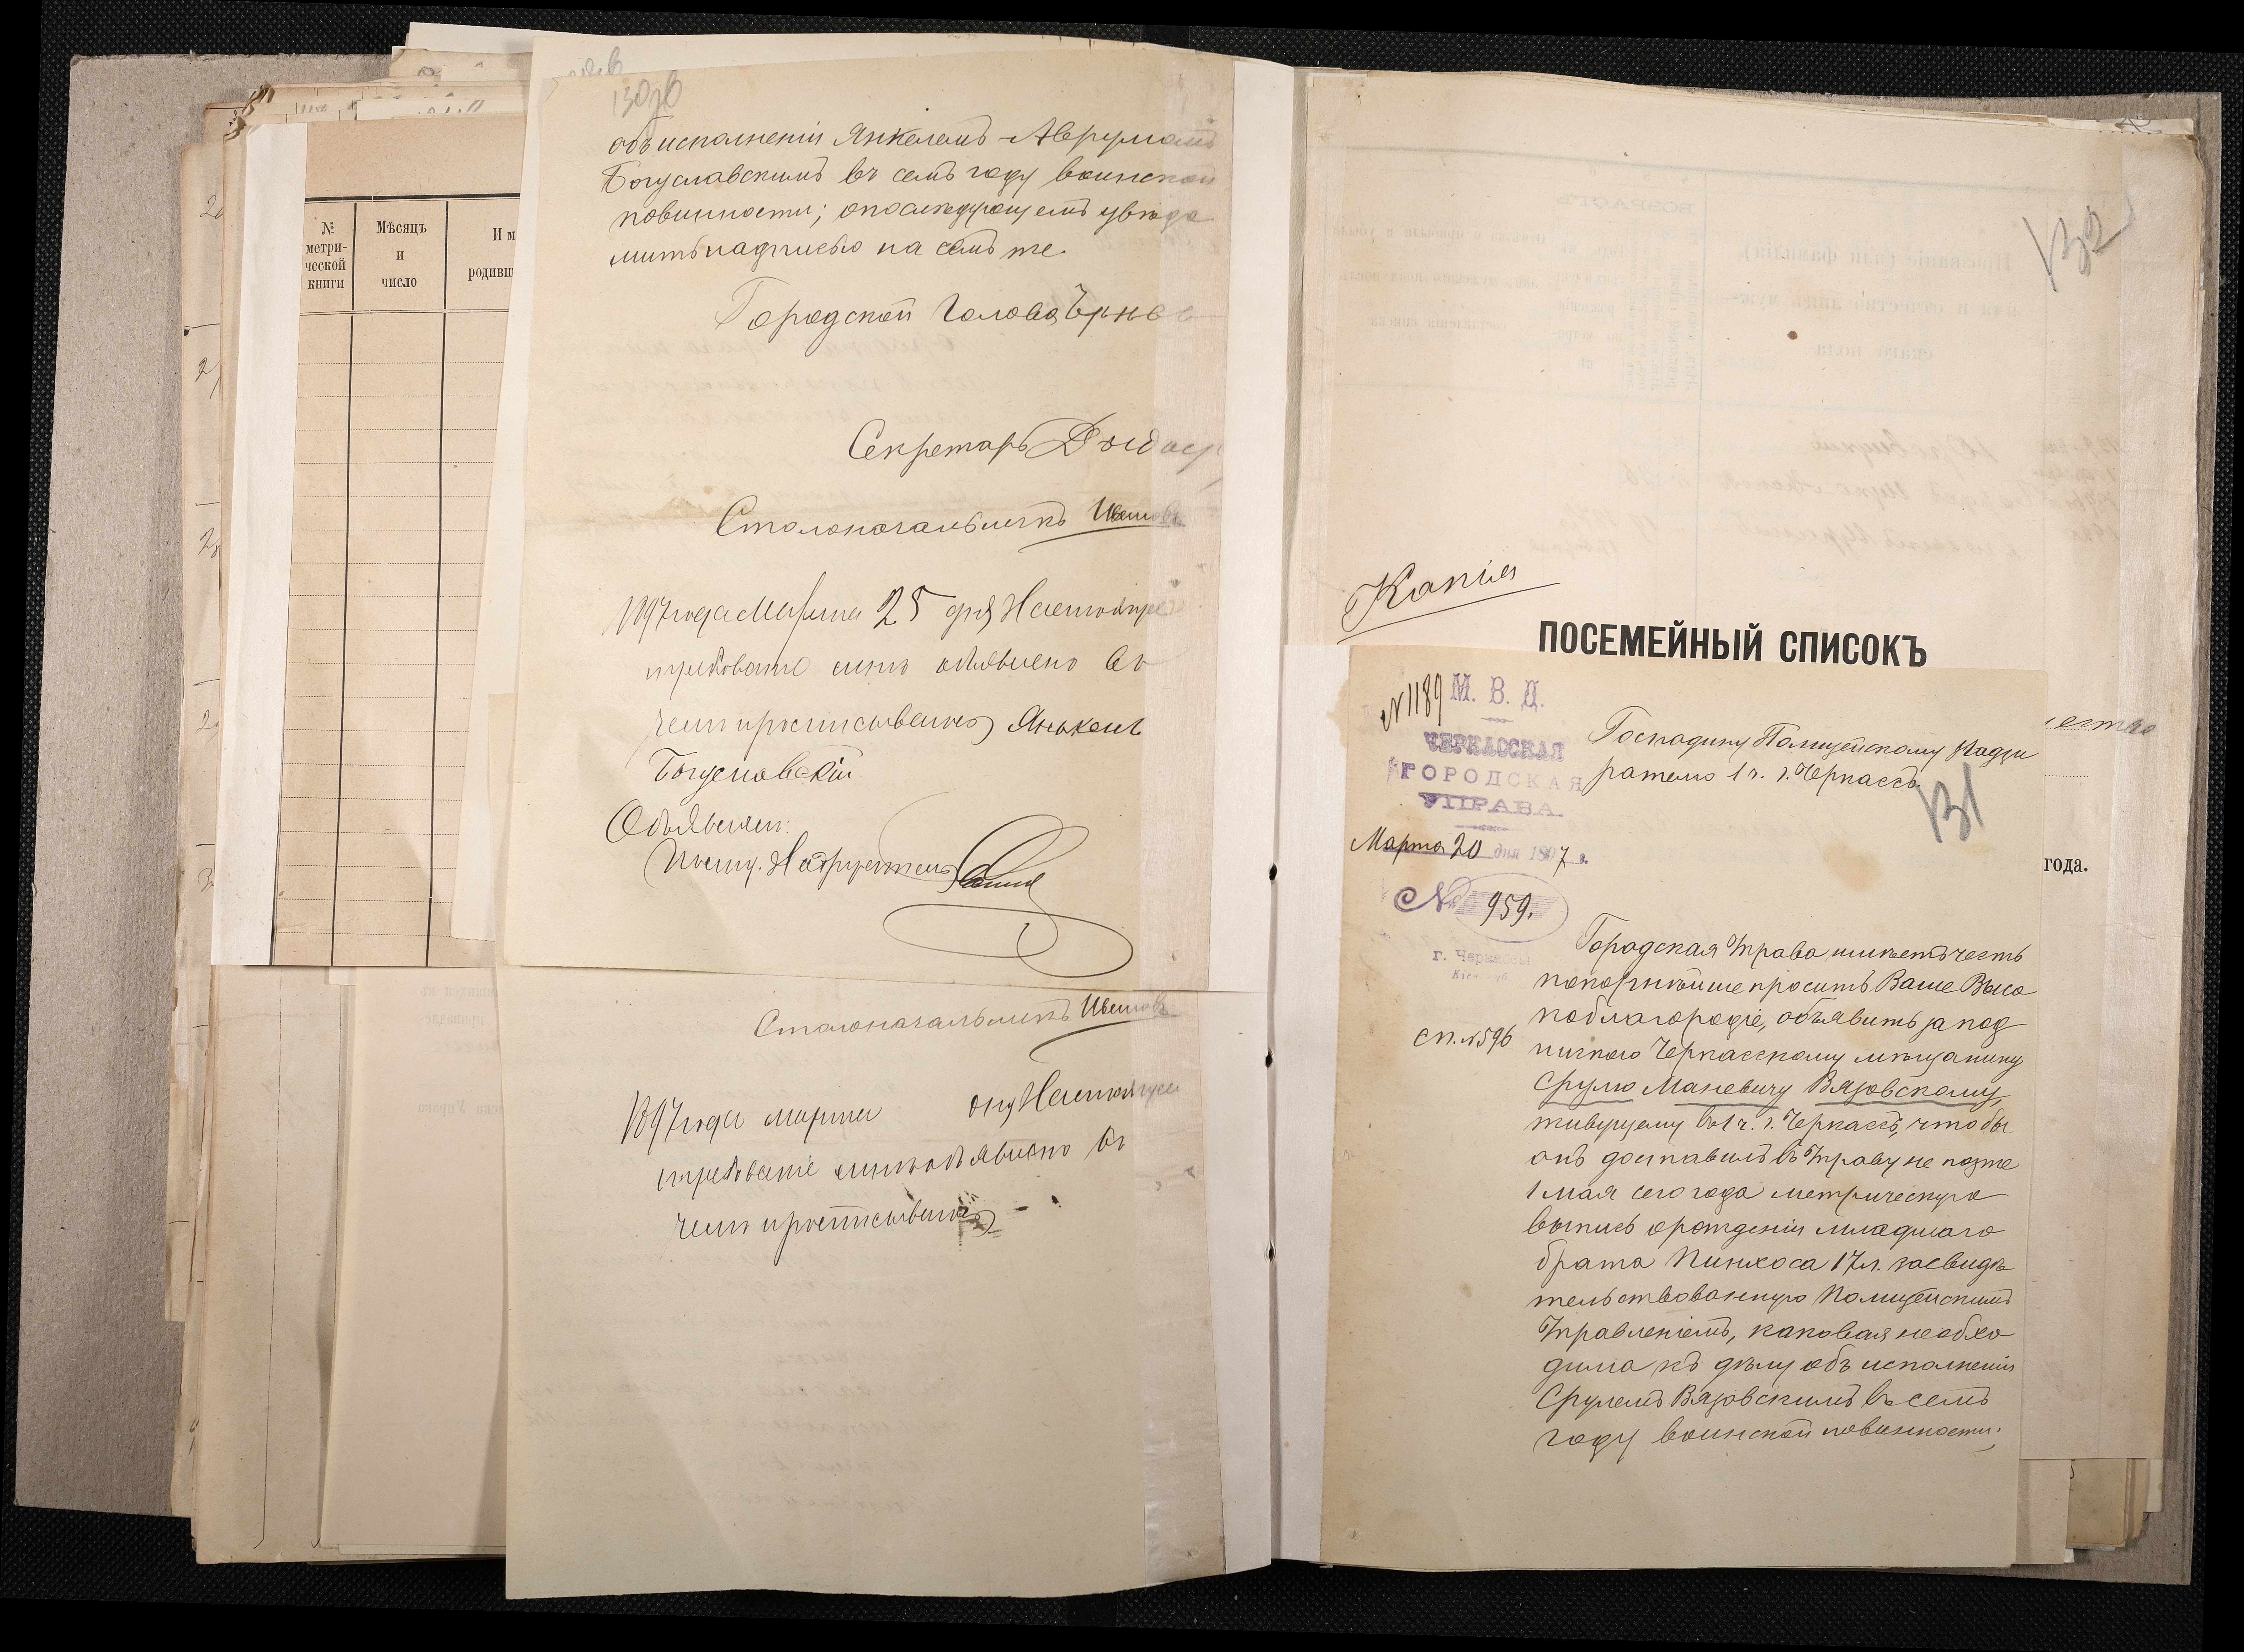 №
метри-
ческой
книги
Мѣсяцъ
и
число
130 об
объ исполненіи Янкелемъ-Аврумомъ
Богуславскимъ въ семъ году воинской
повинности; о послѣдующемъ увѣдо
мить надписью на семъ же.
Городской Голова
Секретарь
Столоначальникъ Ивановъ
1897 года Марта 25 дня Настоящее
требованіе мнѣ объявлено въ
чемъ и росписываюсь Янкель
Богуславскій
Объявилъ:
Полиц. Надзиратель
Столоначальникъ Ивановъ
1897 года марта дня Настоящее
требованіе мнѣ объявлено въ
чемъ и росписываюсь
132
Копія
ПОСЕМЕЙНЫЙ СПИСОКЪ
года.
№ 1189
М. В. Д.
ЧЕРКАССКАЯ
ГОРОДСКАЯ
УПРАВА
Марта 20 дня 1897 г.
№ 959.
г. Черкассы
Господину Полицейскому Надзи
рателю 1 ч. г. Черкассъ
131
Городская Управа имѣетъ честь
покорнѣйше просить Ваше Высо
коблагородіе, объявить за под
пиского Черкасскому мѣщанину
сп. № 596
Срулю Маневичу Вязовскому,
живущему въ 1 ч. г. Черкассъ, чтобы
онъ доставилъ въ Управу не позже
1 мая сего года метрическую
выпись о рожденіи младшаго
брата Пинхоса 17 л. засвидѣ
тельствованную Полицейскимъ
Управленіемъ, каковая необхо
дима къ дѣлу объ исполненіи
Срулемъ Вязовскимъ въ семъ
году воинской повинности;